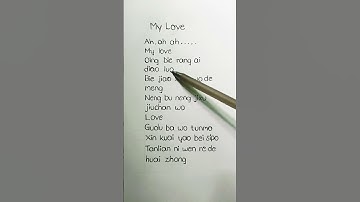 My Love
Ah, ah ah.....
My love
Qing bie rang ai
diao luo
Bie jiao de
meng
Neng bu neng jiu
jiuchan wo
Love
Guolu ba wo tunmo
Xin kuai yao bei sipo
Tanlian ni wen re de
huai zhong